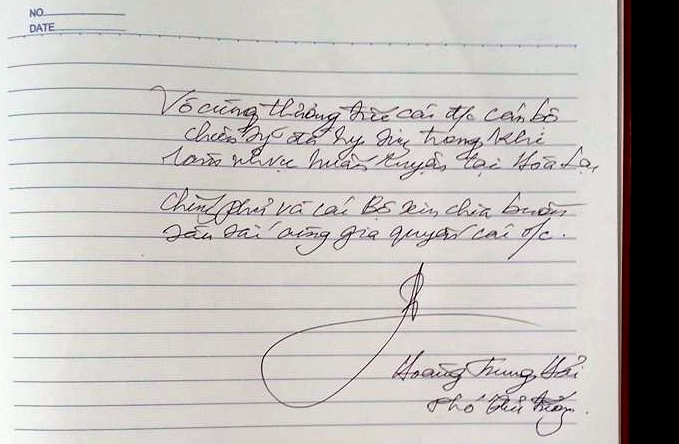 NO
DATE
Vô cùng thương tiếc các đ/c cán bộ
chiến sỹ đã hy sinh trong khi
làm n/vụ huấn luyện tại Hòa Lạc
Chính phủ và các Bộ xin chia buồn
sâu sắc cùng gia quyến các đ/c.
Hoàng Trung Hải
Phó Thủ tướng.